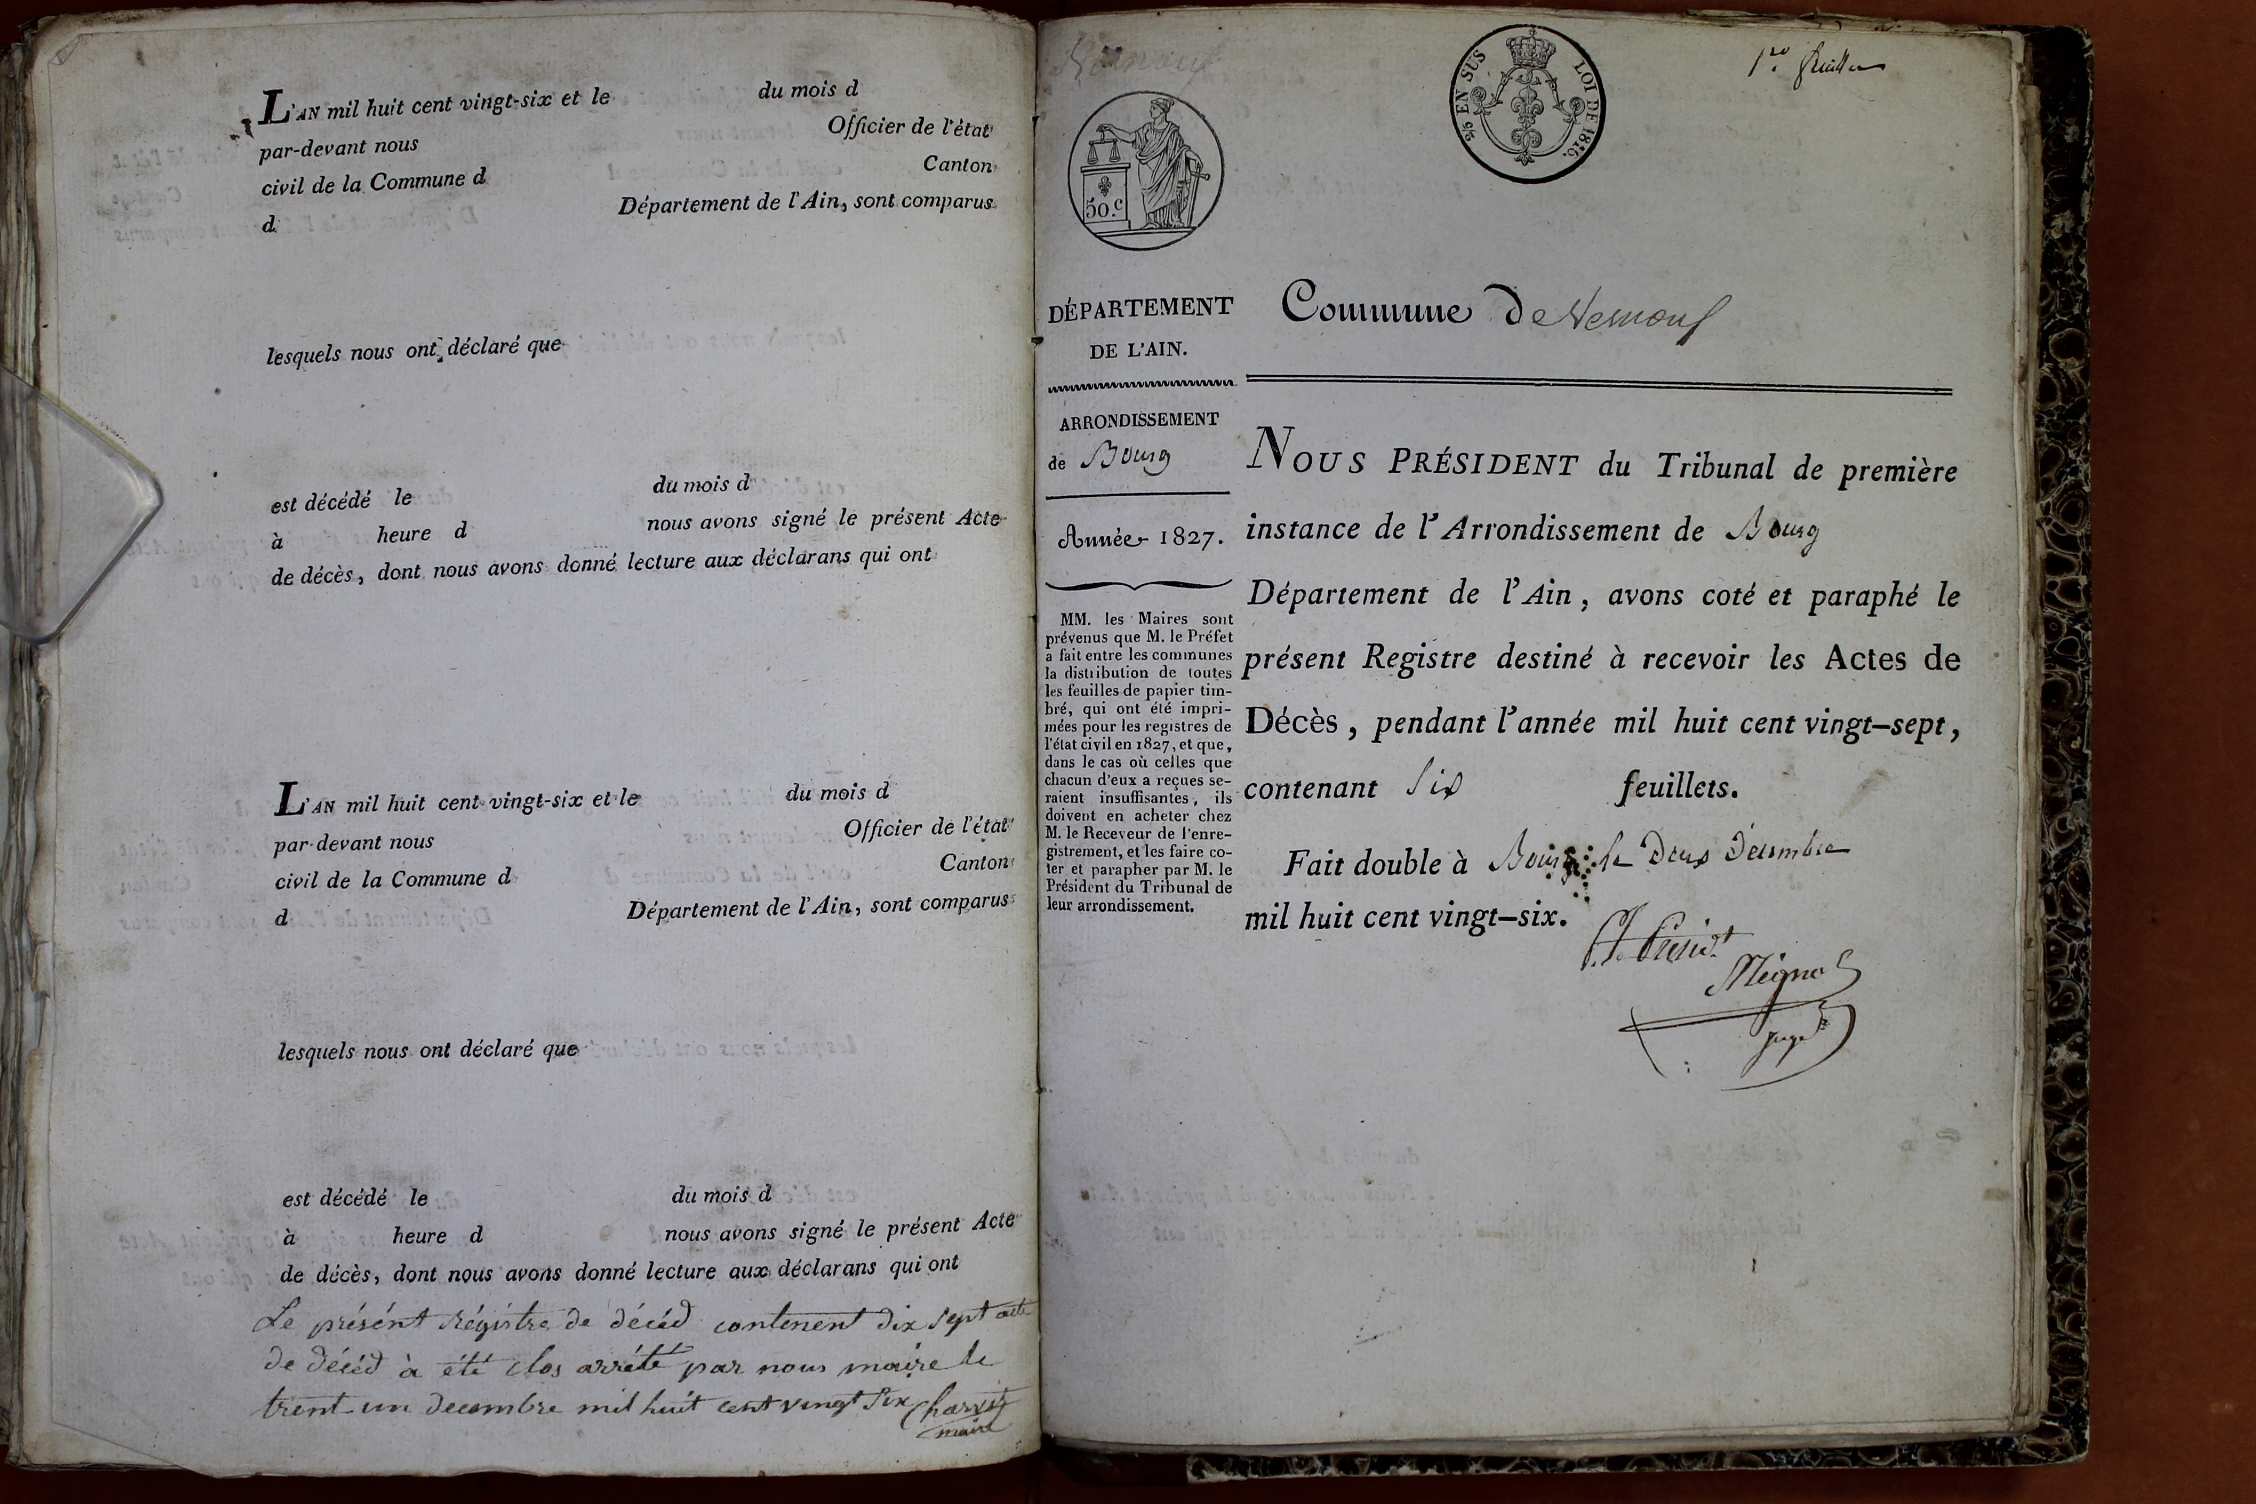 L'AN mil huit cent vingt-six et le du mois d
par-devant nous Officier de l'état
civil de la Commune d Canton
d Département de l'Ain, sont comparus
lesquels nous ont déclaré que
est décédé le du mois d
à heure d nous avons signé le présent Acte
de décès, dont nous avons donné lecture aux déclarans qui ont
L'AN mil huit cent vingt-six et le du mois d
par-devant nous Officier de l'état
civil de la Commune d Canton
d Département de l'Ain, sont comparus
lesquels nous ont déclaré que
est décédé le du mois d
à heure d nous avons signé le présent Acte
de décès, dont nous avons donné lecture aux déclarans qui ont
Le présént régistre de décéd contenent dix sept acte
de décéd à été clos arrété par nous maire le
trent-un decembre mil huit cent vingt six Charvet
maire
2/5 EN SUS LOI DE 1816.
1er feuillet
50.c
DÉPARTEMENT
DE L'AIN.
ARRONDISSEMENT
de Bourg
Année 1827.
MM. les Maires sont
prévenus que M. le Préfet
a fait entre les communes
la distribution de toutes
les feuilles de papier tim-
bré, qui ont été impri-
mées pour les registres de
l'état civil en 1827, et que,
dans le cas où celles que
chacun d'eux a reçues se-
raient insuffisantes, ils
doivent en acheter chez
M. le Receveur de l'enre-
gistrement, et les faire co-
ter et parapher par M. le
Président du Tribunal de
leur arrondissement.
Commune de Vernoux
NOUS PRÉSIDENT du Tribunal de première
instance de l'Arrondissement de Bourg
Département de l'Ain, avons coté et paraphé le
présent Registre destiné à recevoir les Actes de
Décès, pendant l'année mil huit cent vingt-sept,
contenant Six feuillets.
Fait double à Bourg le Deux Décembre
mil huit cent vingt-six.
Présidt
juge